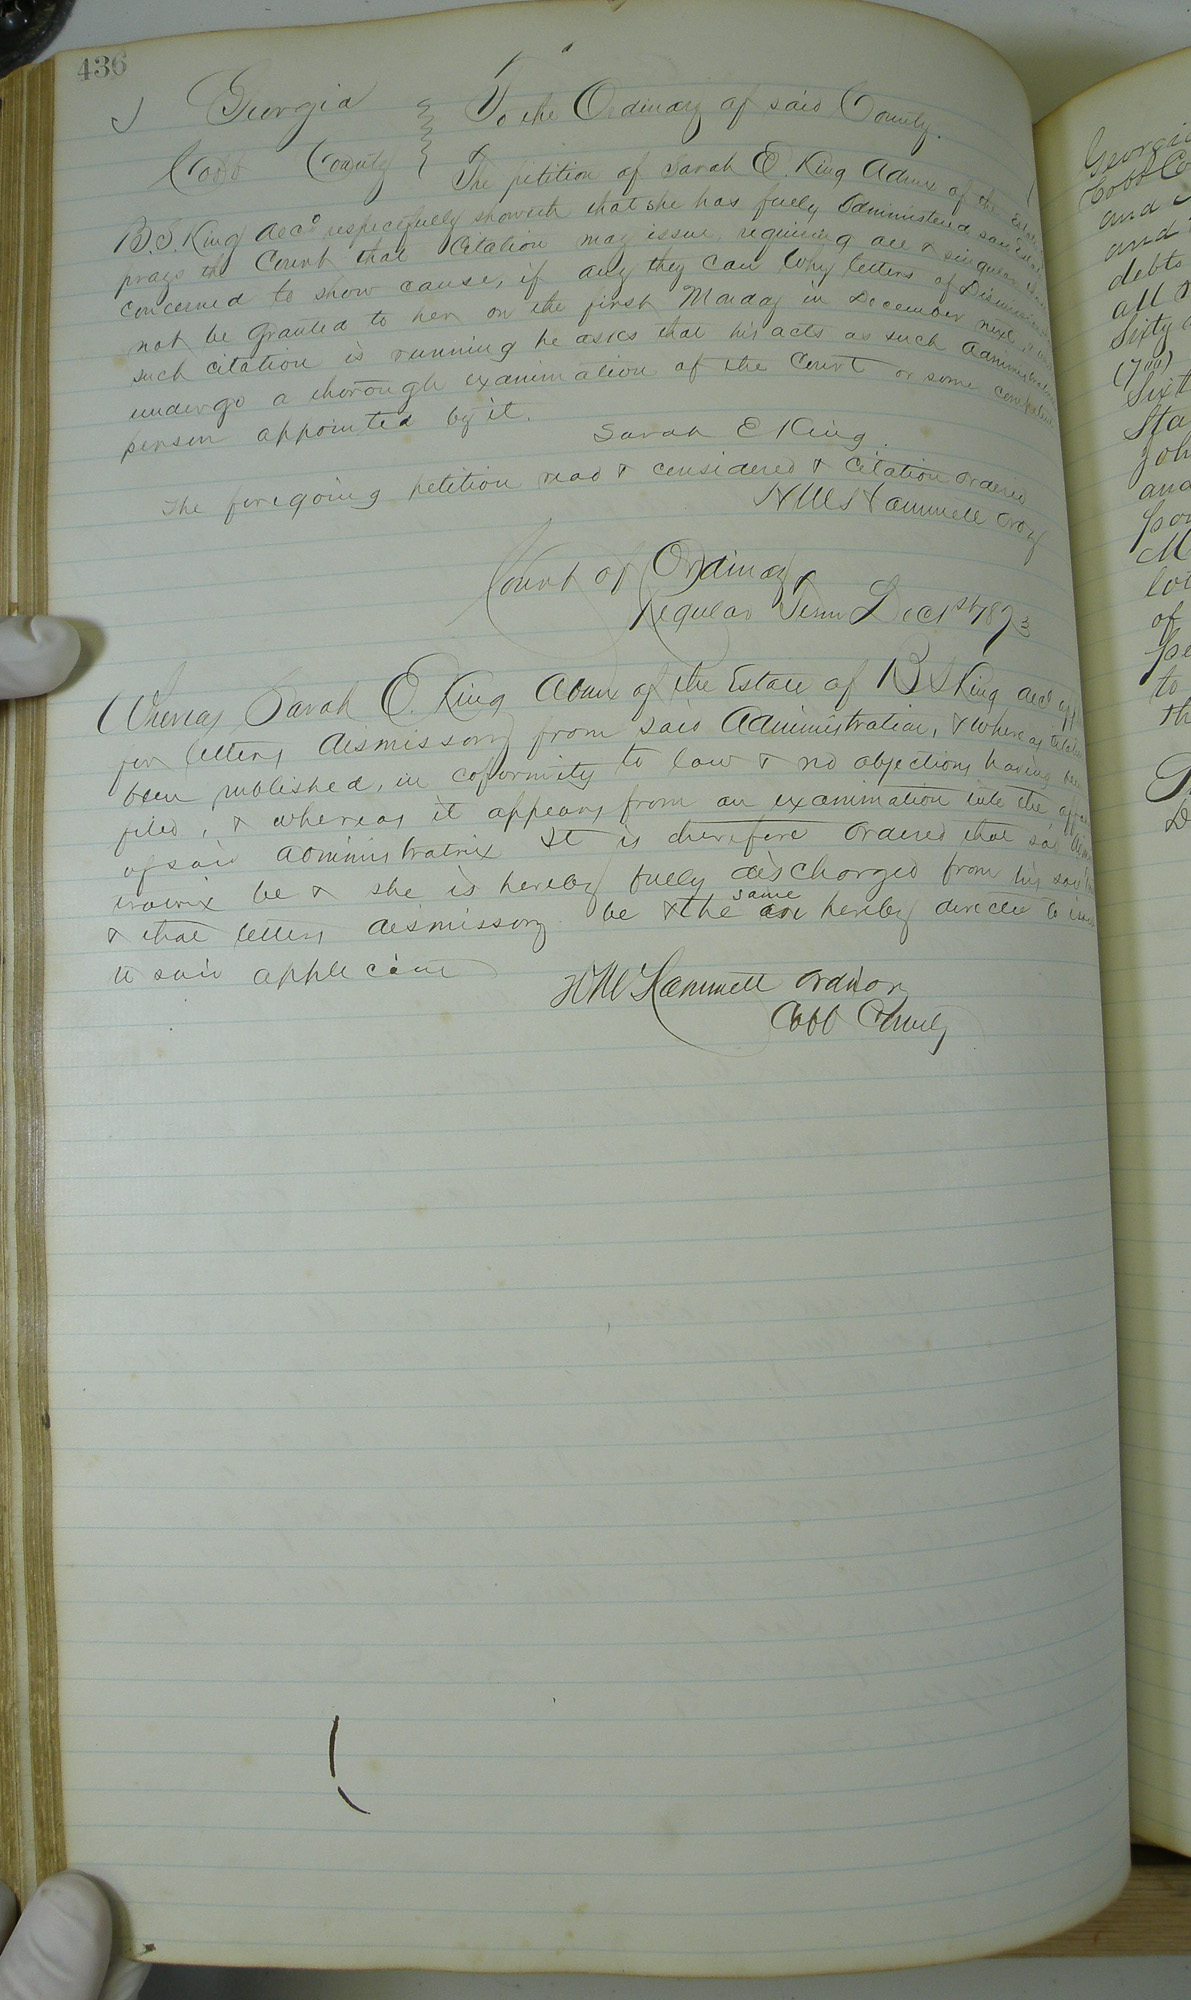 436
Georgia } To the Ordinary of said County.
Cobb County } The petition of Sarah E. King Admrx of the Estate
B. S. King decd respectfully showeth that she has fully administered said Estate
prays the Court that Citation may issue requiring all & singular
concerned to show cause, if any they can why letters of Dismission
not be granted to her on the first Monday in December next, &
such citation is running he asks that his acts as such Administrator
undergo a thorough examination of the Court or some competent
person appointed by it.
Sarah E King.
The foregoing petition read & considered & Citation ordered
H M Hammett Ordy
Court of Ordinary,
Regular Term Dec 1st 1873
Whereas Sarah E. King Admrx of the Estate of B S King decd
for letters dismissory from said Administration, & whereas
been published, in coformity to law & no objections having been
filed, & whereas it appears from an examination into the
of said administratrix It is therefore ordered that said
tratrix be & she is hereby fully discharged from his said
& that letters dismissory be & the same are hereby directed to issue
to said applicant
H M Hammett Ordinary
Cobb County
Georgia
Cobb Co
and
and
debts
all
Sixty
(7
Sixt
Sta
Joh
and
por
M
lot
of
pe
to
th